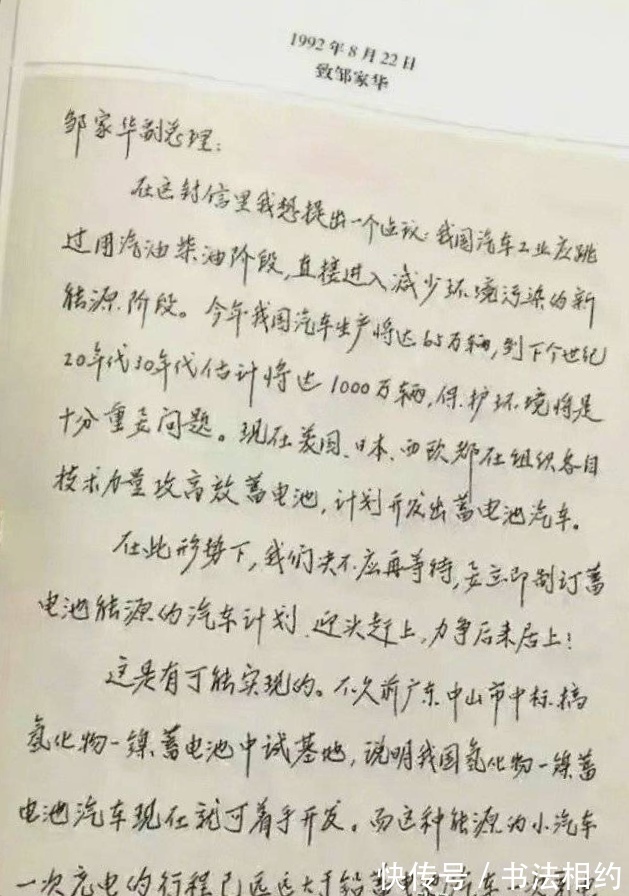 1992年8月22日
致邹家华
邹家华副总理：
在这封信里我想提出一个建议：我国汽车工业应跳
过用汽油柴油阶段，直接进入减少环境污染的新
能源阶段。今年我国汽车生产将达65万辆，到下个世纪
20年代30年代估计将达1000万辆，保护环境将是
十分重要问题。现在美国、日本、西欧都在组织各自
技术力量攻高效蓄电池，计划开发出蓄电池汽车。
在此形势下，我们决不应再等待，要立即制订蓄
电池能源的汽车计划，迎头赶上，力争后来居上！
这是有可能实现的。不久前广东中山市中标搞
氢化物—镍蓄电池中试基地，说明我国氢化物—镍蓄
电池汽车现在就可着手开发。而这种能源的小汽车
一次充电的行程已远远大于铅蓄
快传号／书法相约